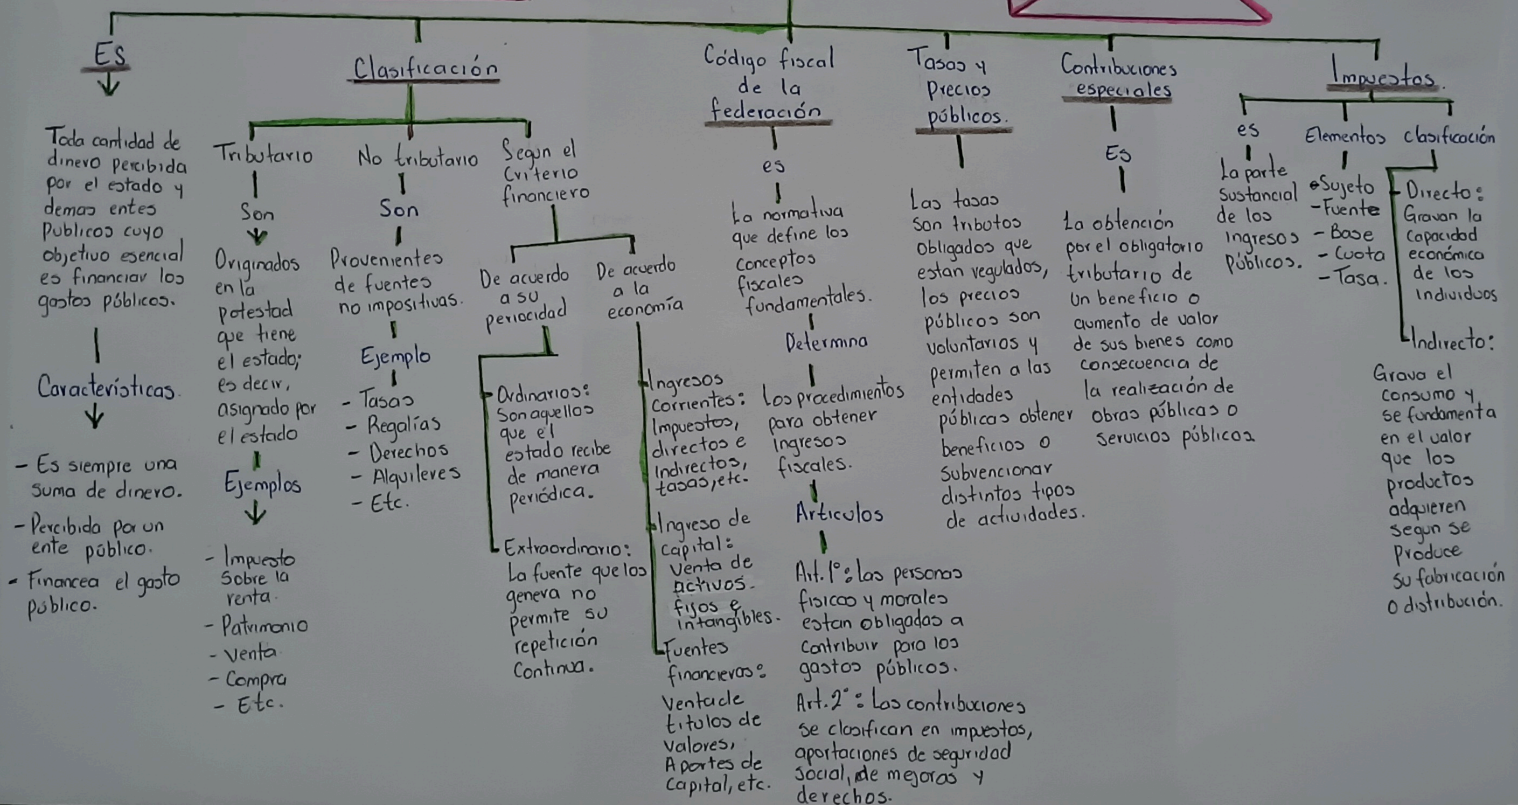 ES
Toda cantidad de
dinero percibida
por el estado y
demas entes
Publicos cuyo
objetivo esencial
es financiar los
gastos públicos.
Características
- Es siempre una
suma de dinero.
- Percibida por un
ente público.
- Financea el gasto
público.
Clasificación
Tributario
Son
Originados
en la
potestad
que tiene
el estado;
es decir,
asignado por
el estado
Ejemplos
- Impuesto
Sobre la
renta.
- Patrimonio
- Venta
- Compra
- Etc.
No tributario
Son
Provenientes
de fuentes
no impositivas.
Ejemplo
- Tasas
- Regalías
- Derechos
- Alquileres
- Etc.
Segun el
Criterio
financiero
De acuerdo
a su
periocidad
- Ordinarios:
Son aquellos
que el
estado recibe
de manera
periódica.
- Extraordinario:
La fuente que los
genera no
permite su
repetición
Continua.
De acuerdo
a la
economía
Ingresos
Corrientes:
Impuestos,
directos e
Indirectos,
tasas, etc.
Ingreso de
Capital:
Venta de
activos.
fijos e
intangibles.
Fuentes
financieras:
Venta de
titulos de
Valores,
Aportes de
Capital, etc.
Código fiscal
de la
federación
es
La normativa
que define los
conceptos
fiscales
fundamentales.
Determina
Los procedimientos
para obtener
Ingresos
fiscales.
Articulos
Art. 1°: las personas
fisicas y morales
estan obligadas a
Contribuir para los
gastos públicos.
Art. 2°: Las contribuciones
se clasifican en impuestos,
aportaciones de seguridad
social, de mejoras y
derechos.
Tasas y
Precios
públicos.
Las tasas
son tributos
obligados que
estan regulados,
los precios
públicos son
voluntarios y
permiten a las
entidades
públicas obtener
beneficios o
Subvencionar
distintos tipos
de actividades.
Contribuciones
especiales
Es
La obtención
por el obligatorio
tributario de
un beneficio o
aumento de valor
de sus bienes como
Consecuencia de
la realización de
obras públicas o
servicios públicos.
Impuestos.
es
La parte
Sustancial
de los
ingresos
Públicos.
Elementos
• Sujeto
- Fuente
- Base
- Cuota
- Tasa.
clasificación
- Directo:
Gravan la
capacidad
económica
de los
individuos
- Indirecto:
Grava el
consumo y
se fundamenta
en el valor
que los
productos
adquieren
segun se
Produce
su fabricación
o distribución.